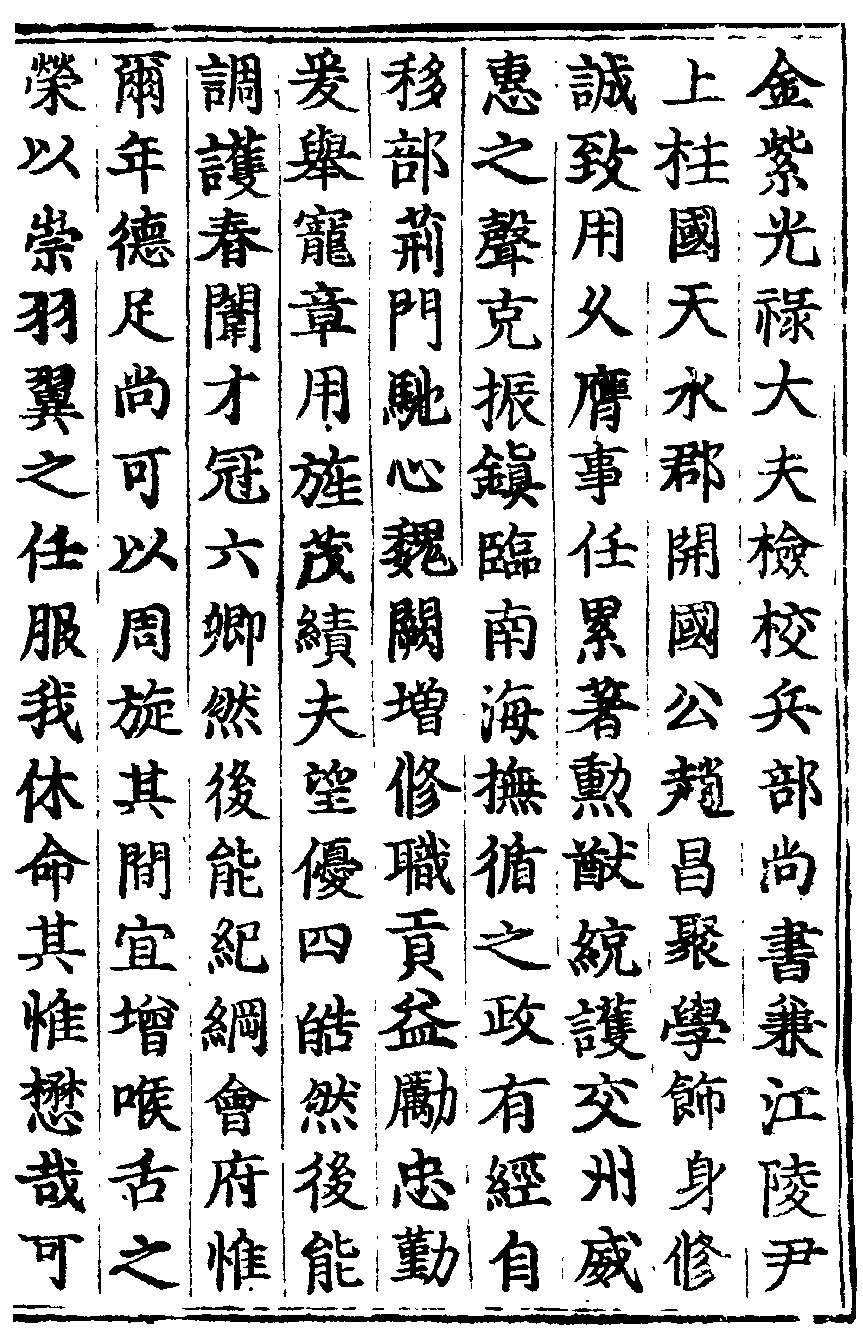 金紫光祿大夫檢校兵部尚書兼江陵尹
上柱國天水郡開國公趙昌聚學飾身修
誠致用乆膺事任累著勲猷統護交州威
惠之聲克振鎮臨南海撫循之政有經自
移部荊門馳心魏闕增修職貢益勵忠勤
爰舉寵章用旌茂績夫望優四皓然後能
調護春闈才冠六卿然後能紀綱會府惟
爾年德足尚可以周旋其間宜增喉舌之
榮以崇羽翼之任服我休命其惟懋哉可